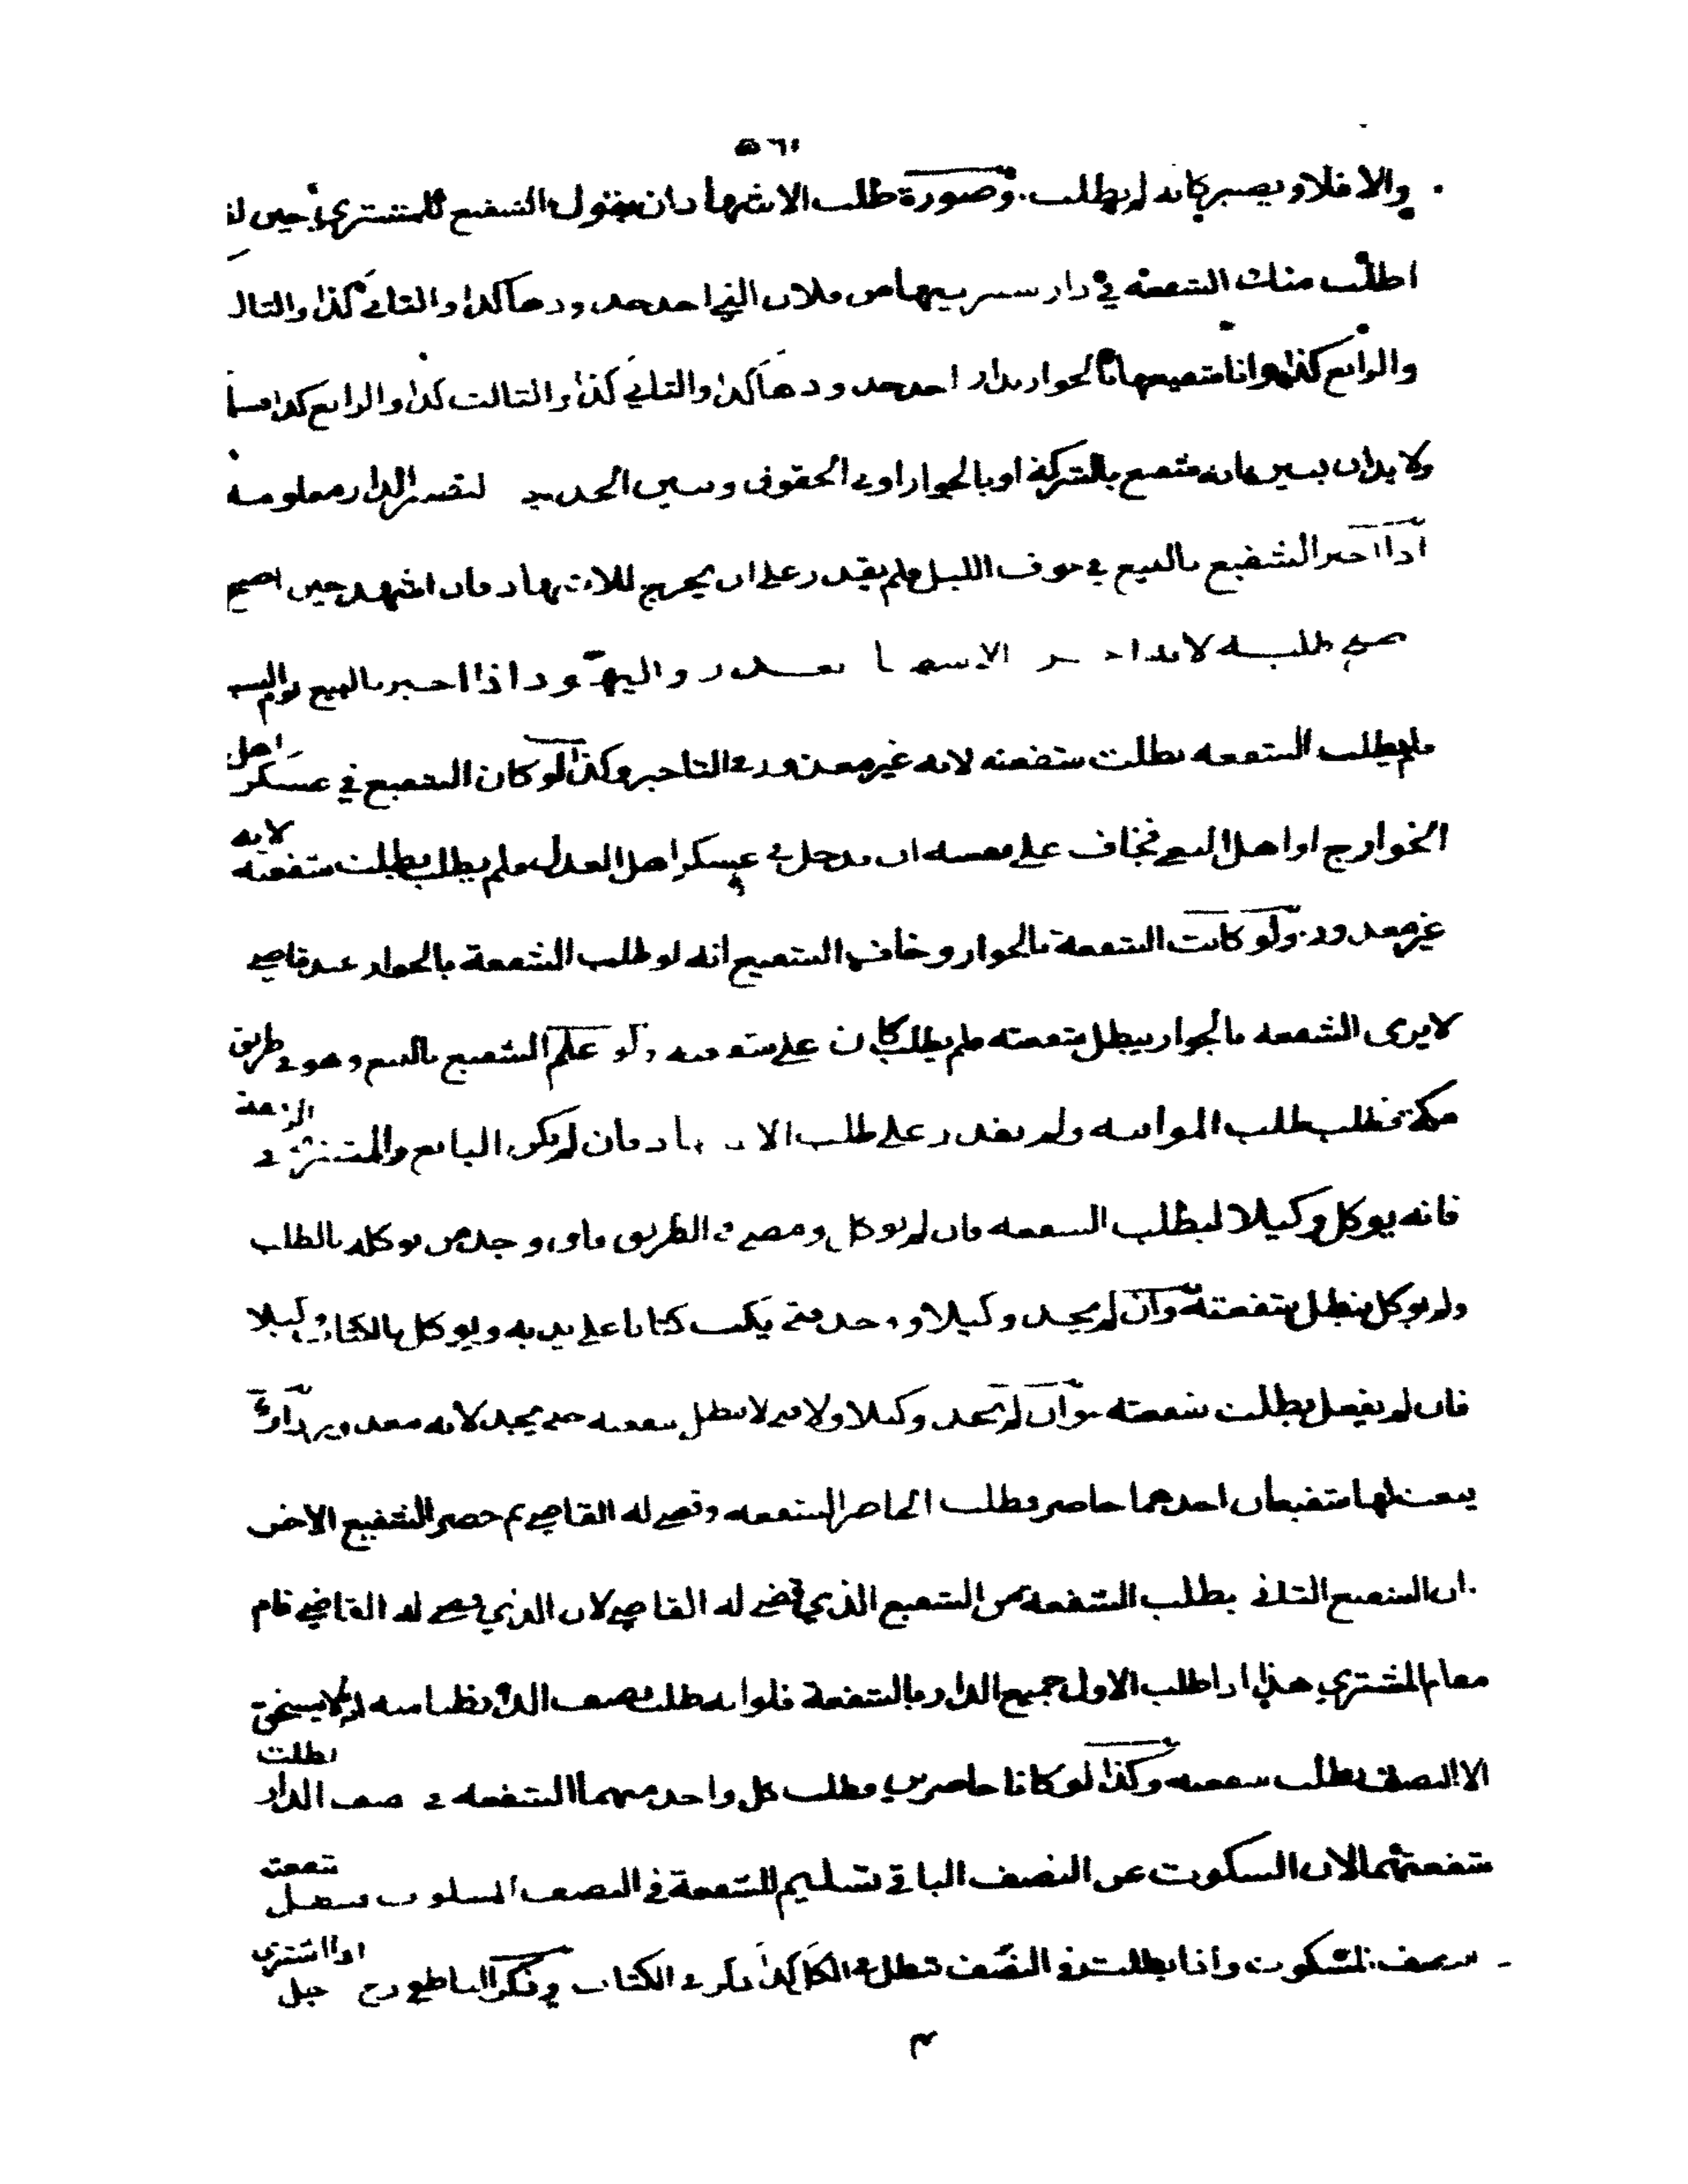 والا فلا ويصير كانه لم يطلب وصورة طلب الاشهاد ان يقول الشفيع للمشتري حين
اطلب منك الشفعة في دار اشتريتها من فلان التي احد حدودها كذا والثاني كذا والثالث
والرابع كذا وانا شفيعها بالجوار بدار احد حدودها كذا والثاني كذا والثالث كذا والرابع كذا
ولا بد ان يبين انه شفيع بالشركة او بالجوار او في الحقوق ويبين الحدود لتصير الدار معلومة
اذا اخبر الشفيع بالبيع في جوف الليل فلم يقدر على ان يخرج للاشهاد فان اشهد حين اصبح
صح طلبه واليهود اذا اخبر بالبيع يوم السبت
فلم يطلب الشفعة بطلت شفعته لانه غير معذور في التاخير وكذا لو كان الشفيع في عسكر اهل
الخوارج او اهل البغي فخاف على نفسه ان يدخل في عسكر اهل العدل فلم يطلب بطلت شفعته لانه
غير معذور ولو كانت الشفعة بالجوار وخاف الشفيع انه لو طلب الشفعة بالجوار عند قاضي
لا يرى الشفعة بالجوار يبطل شفعته فلم يطلب كان على شفعته ولو علم الشفيع بالبيع وهو في طريق
مكة فطلب طلب المواثبة ولم يقدر على طلب الاشهاد فان لم يكن البائع والمشتري في
فانه يوكل وكيلا ليطلب الشفعة فان لم يوكل ومضى في الطريق فان وجد من يوكله بالطلب
ولم يوكل يبطل شفعته وان لم يجد وكيلا ووجد فتى يكتب كتابا على يديه ويوكل بالكتاب وكيلا
فان لم يفعل بطلت شفعته وان لم يجد وكيلا ولا لا تبطل شفعته حتى يجد لانه معذور دار
بيعت لها شفيعان احدهما حاضر فطلب الحاضر الشفعة وقضى له القاضي ثم حضر الشفيع الاخر
ان الشفيع الثاني يطلب الشفعة من الشفيع الذي قضى له القاضي لان الذي قضى له القاضي قام
مقام المشتري هذا اذا طلب الاول جميع الدار بالشفعة فلو انه طلب نصف الدار ظنا منه انه لا يستحق
الا النصف بطلت شفعته وكذا لو كانا حاضرين فطلب كل واحد منهما الشفعة في نصف الدار بطلت
شفعتهما لان السكوت عن النصف الباقي تسليم للشفعة في النصف المسلوب شفعته
نصف السكوت واذا بطلت في النصف تبطل في الكل كذا ذكر في الكتاب وذكر الناطفي رح اذا اشترى